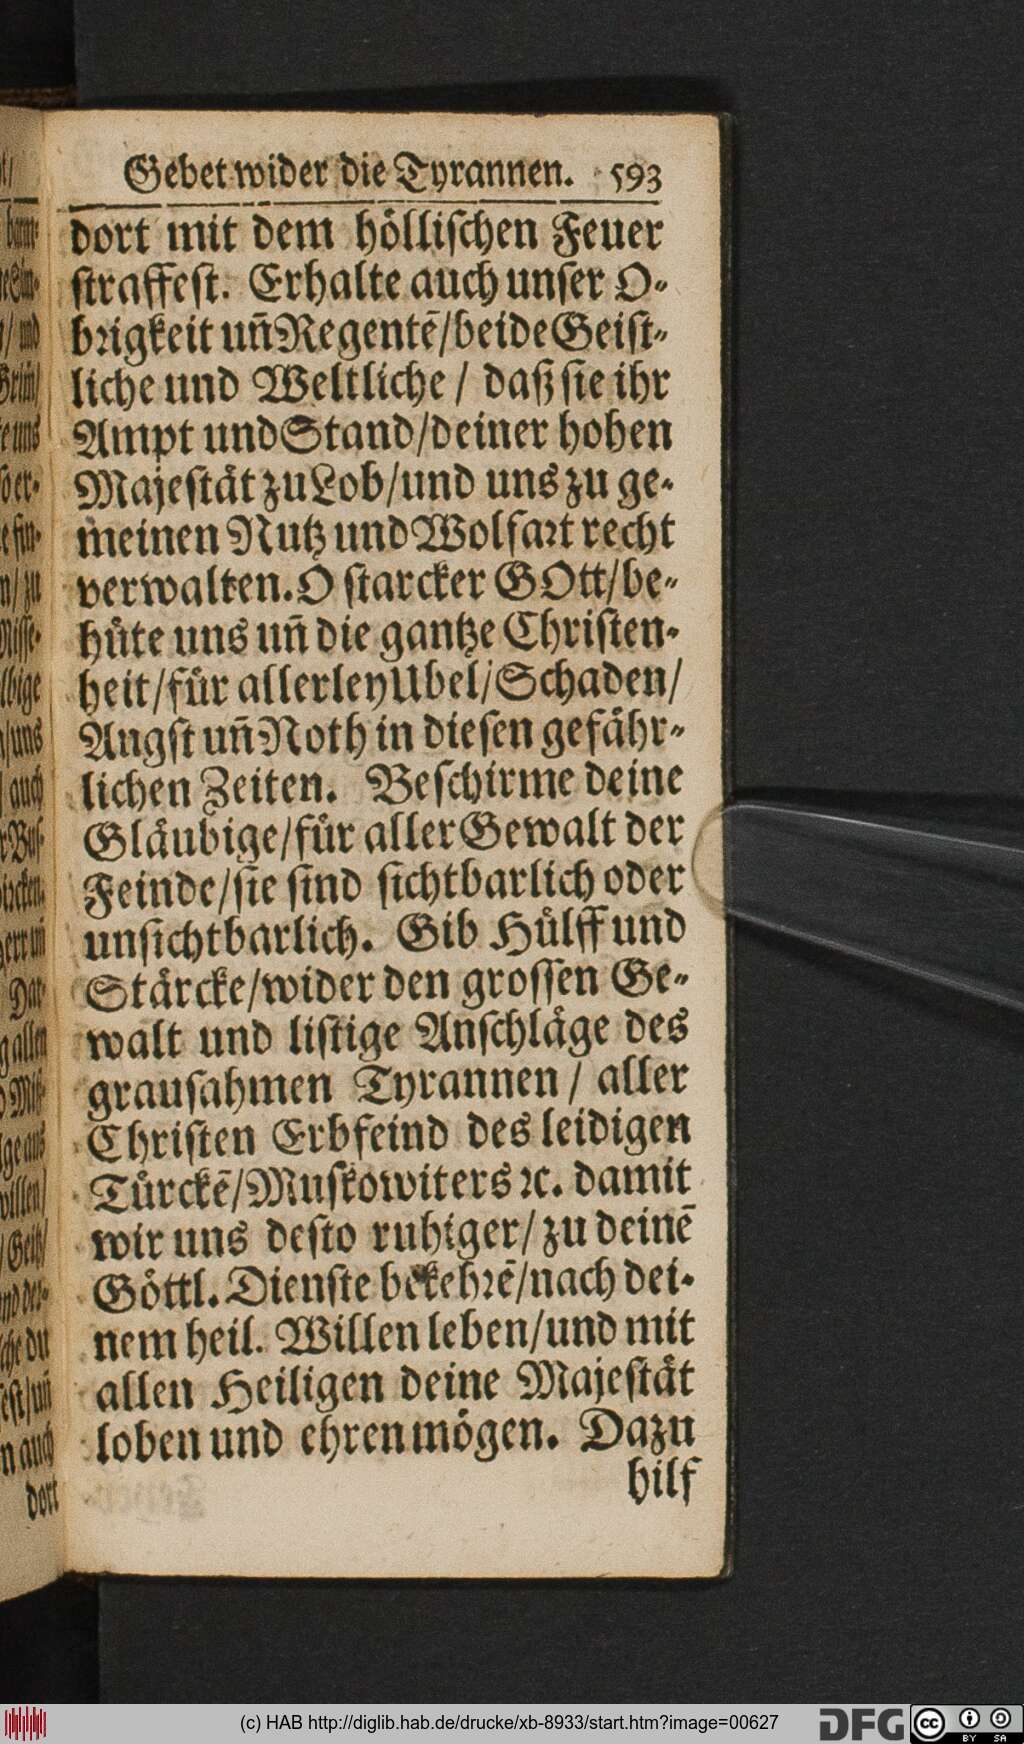 Gebet wider die Tyrannen. 593
dort mit dem höllischen Feuer
straffest. Erhalte auch unser O-
brigkeit uñ Regentē/beide Geist-
liche und Weltliche / daß sie ihr
Ampt und Stand/deiner hohen
Majestät zu Lob/und uns zu ge-
meinen Nutz und Wolfart recht
verwalten. O starcker GOtt/be-
hüte uns uñ die gantze Christen-
heit/für allerley Ubel/Schaden/
Angst uñ Noth in diesen gefähr-
lichen Zeiten. Beschirme deine
Gläubige/für aller Gewalt der
Feinde/sie sind sichtbarlich oder
unsichtbarlich. Gib Hülff und
Stärcke/wider den grossen Ge-
walt und listige Anschläge des
grausahmen Tyrannen / aller
Christen Erbfeind des leidigen
Türckē/Muskowiters ꝛc. damit
wir uns desto ruhiger/zu deinē
Göttl. Dienste bekehrē/nach dei-
nem heil. Willen leben/und mit
allen Heiligen deine Majestät
loben und ehren mögen. Dazu
hilf
dort
(c) HAB http://diglib.hab.de/drucke/xb-8933/start.htm?image=00627
DFG
cc BY SA